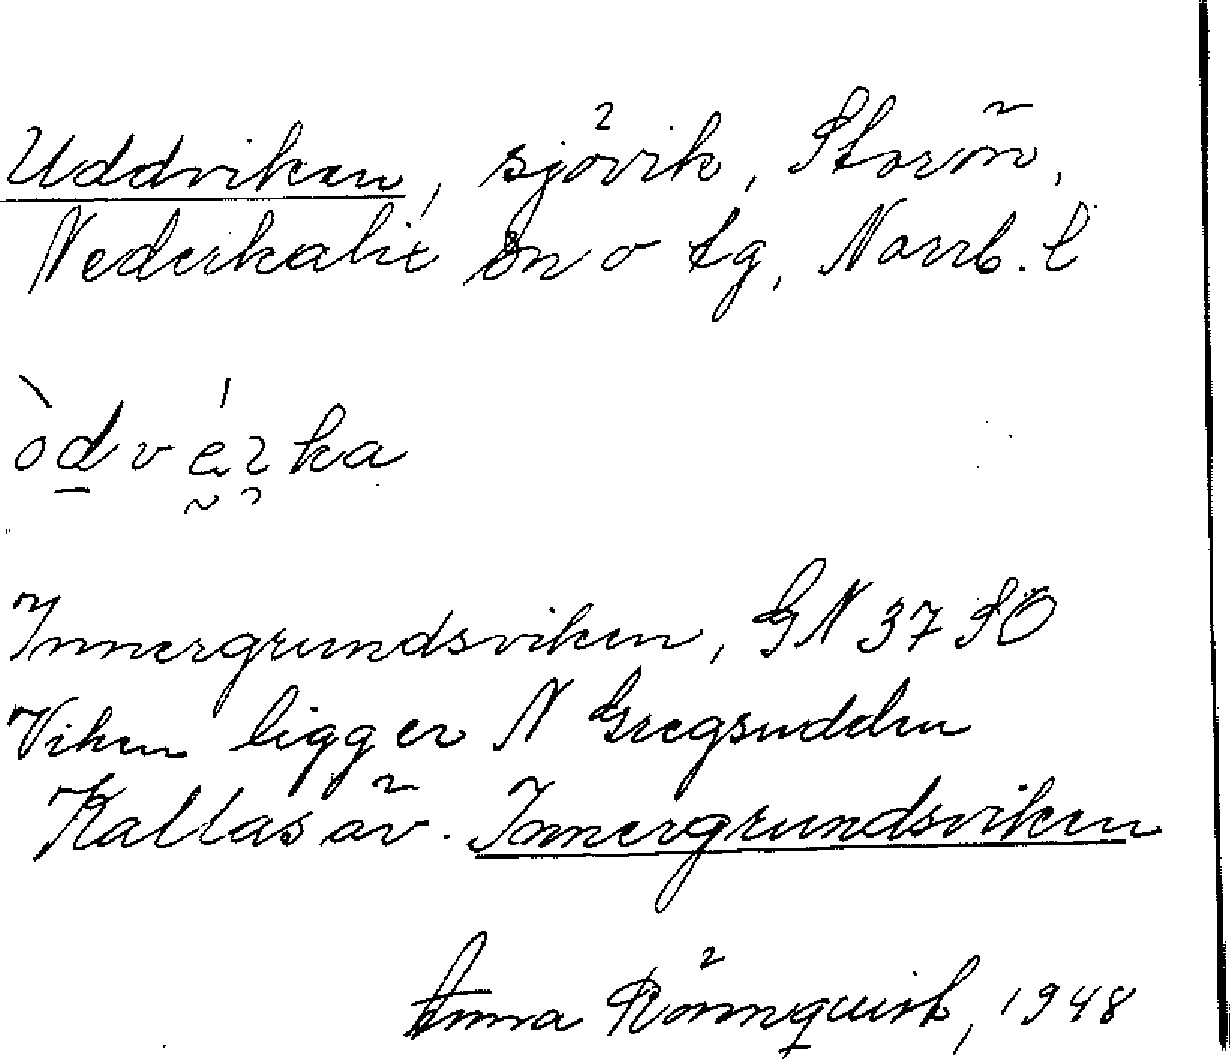 Uddviken, sjövik, Storön,
Nederkalix sn o tg, Norrb. l
òdvérka
Innergrundsviken, GN 37 SO
Viken ligger N Gregsudden
Kallas äv. Innergrundsviken
Anna Rönnquist, 1948